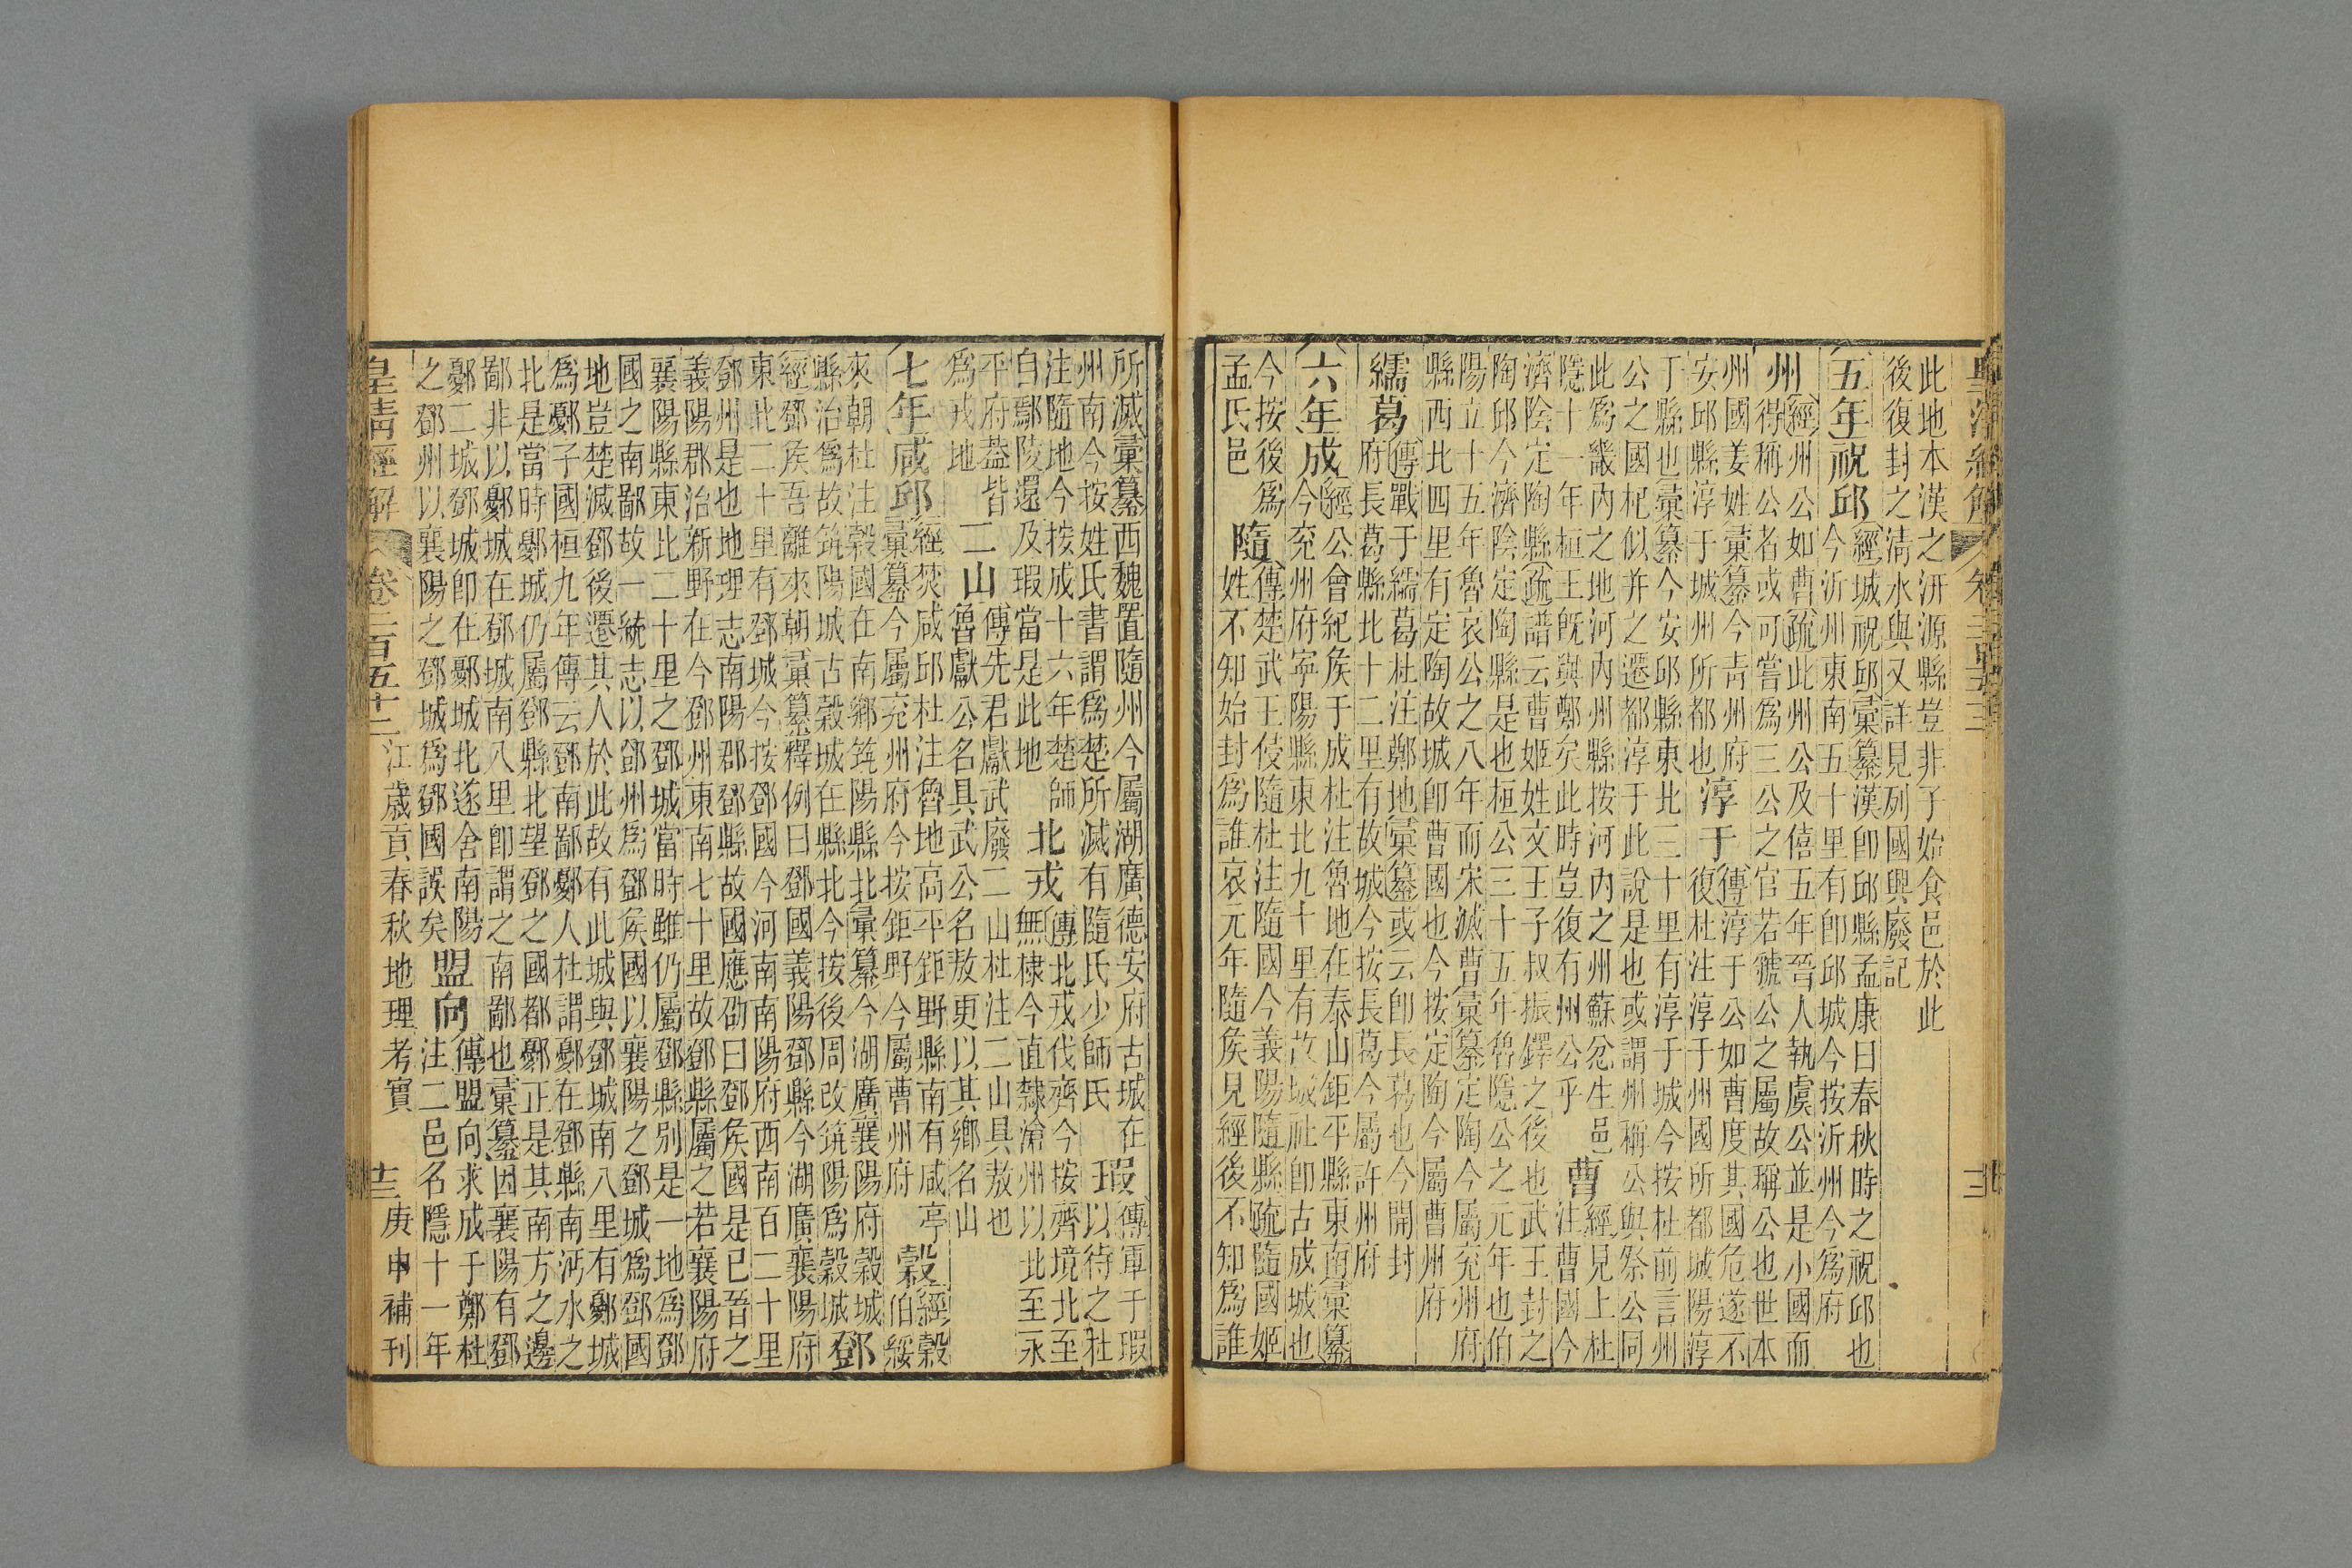 此地本漢之汧源縣豈非子始食邑於此
後復封之淸水與又詳見列國興廢記
五年祝邱經城祝邱彙纂漢卽邱縣孟康曰春秋時之祝邱也
今沂州東南五十里有卽邱城今按沂州今爲府
州經州公如曹疏此州公及僖五年晉人執虞公並是小國而
得稱公者或可嘗爲三公之官若虢公之屬故稱公也世本
州國姜姓彙纂今靑州府
安邱縣淳于城州所都也
淳于傳淳于公如曹度其國危遂不
復杜注淳于州國所都城陽淳
于縣也彙纂今安邱縣東北三十里有淳于城今按杜前言州
公之國杞似幷之遷都淳于此說是也或謂州稱公與祭公同
此爲畿內之地河內州縣按河內之州蘇忿生邑
隱十一年桓王旣與鄭矣此時豈復有州公乎
曹經見上杜
注曹國今
濟陰定陶縣疏譜云曹姬姓文王子叔振鐸之後也武王封之
陶邱今濟陰定陶縣是也桓公三十五年魯隱公之元年也伯
陽立十五年魯哀公之八年而宋滅曹彙纂定陶今屬兗州府
縣西北四里有定陶故城卽曹國也今按定陶今屬曹州府
繻葛傳戰于繻葛杜注鄭地彙纂或云卽長葛也今開封
府長葛縣北十二里有故城今按長葛今屬許州府
六年成經公會紀侯于成杜注魯地在泰山鉅平縣東南彙纂
今兗州府寧陽縣東北九十里有故城社卽古成城也
今按後爲
孟氏邑
隨傳楚武王侵隨杜注隨國今義陽隨縣疏隨國姬
姓不知始封爲誰哀元年隨侯見經後不知爲誰
所滅彙纂西魏置隨州今屬湖廣德安府古城在
州南今按姓氏書謂爲楚所滅有隨氏少師氏
瑕傳軍于瑕
以待之杜
注隨地今按成十六年楚師
自鄢陵還及瑕當是此地
北戎傳北戎伐齊今按齊境北至
無棣今直隸滄州以北至永
平府蓋皆
爲戎地
二山傳先君獻武廢二山杜注二山具敖也
魯獻公名具武公名敖更以其鄉名山
七年咸邱經焚咸邱杜注魯地高平鉅野縣南有咸亭
彙纂今屬兗州府今按鉅野今屬曹州府
穀經穀
伯綏
來朝杜注穀國在南鄉筑陽縣北彙纂今湖廣襄陽府穀城
縣治爲故筑陽城古穀城在縣北今按後周改筑陽爲穀城
鄧
經鄧侯吾離來朝彙纂釋例曰鄧國義陽鄧縣今湖廣襄陽府
東北二十里有鄧城今按鄧國今河南南陽府西南百二十里
鄧州是也地理志南陽郡鄧縣故國應劭曰鄧侯國是已晉之
義陽郡治新野在今鄧州東南七十里故鄧縣屬之若襄陽府
襄陽縣東北二十里之鄧城當時雖仍屬鄧縣別是一地爲鄧
國之南鄙故一統志以鄧州爲鄧侯國以襄陽之鄧城爲鄧國
地豈楚滅鄧後遷其人於此故有此城與鄧城南八里有鄾城
爲鄾子國桓九年傳云鄧南鄙鄾人杜謂鄾在鄧縣南沔水之
北是當時鄾城仍屬鄧縣北望鄧之國都鄾正是其南方之邊
鄙非以鄾城在鄧城南八里卽謂之南鄙也彙纂因襄陽有鄧
鄾二城鄧城卽在鄾城北遂舍南陽
之鄧州以襄陽之鄧城爲鄧國誤矣
盟向傳盟向求成于鄭杜
注二邑名隱十一年
皇淸經解 卷二百五十二 江歲貢春秋地理考實 十三 庚申補刊